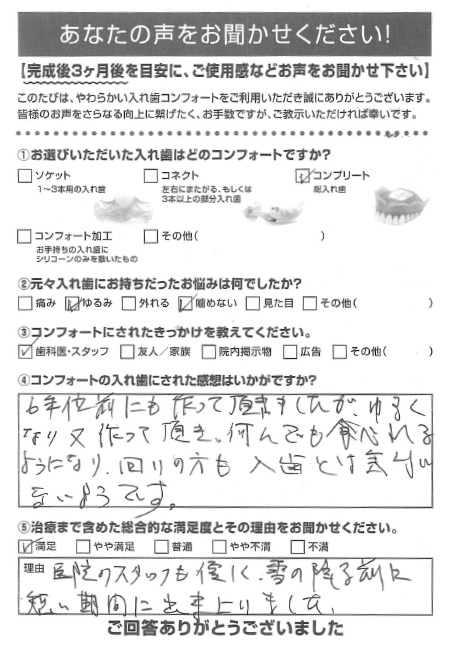 あなたの声をお聞かせください!
【完成後3ヶ月後を目安に、ご使用感などお声をお聞かせ下さい】
このたびは、やわらかい入れ歯コンフォートをご利用いただき誠にありがとうございます。
皆様のお声をさらなる向上に繋げたく、お手数ですが、ご教示いただければ幸いです。
①お選びいただいた入れ歯はどのコンフォートですか?
□ソケット □コネクト ☑コンプリート
1〜3本用の入れ歯 左右にまたがる、もしくは 総入れ歯
3本以上の部分入れ歯
□コンフォート加工 □その他( )
お手持ちの入れ歯に
シリコーンのみを敷いたもの
②元々入れ歯にお持ちだったお悩みは何でしたか?
□痛み ☑ゆるみ □外れる ☑噛めない □見た目 □その他( )
③コンフォートにされたきっかけを教えてください。
☑歯科医・スタッフ □友人/家族 □院内掲示物 □広告 □その他( )
④コンフォートの入れ歯にされた感想はいかがですか?
6年位前にも作って頂きましたが、ゆるく
なり又作って頂き、何んでも食べれる
ようになり、回りの方も入歯とは気付い
ないようです。
⑤治療まで含めた総合的な満足度とその理由をお聞かせください。
☑満足 □やや満足 □普通 □やや不満 □不満
理由 医院のスタッフも優しく、雪の降る前に
短い期間に出来上りました。
ご回答ありがとうございました